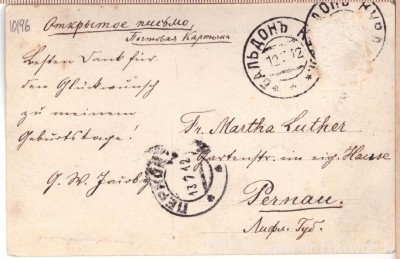 10196
Открытое письмо
Почтовая Карточка
Besten Dank für
den Glückwunsch
zu meinem
Geburtstage!
G. W.
БАЛЬДОНЪ
12 12
Fr. Martha Luther
Gartenstr. im eig. Hause
Pernau.
Лифл. Губ.
13 7 12